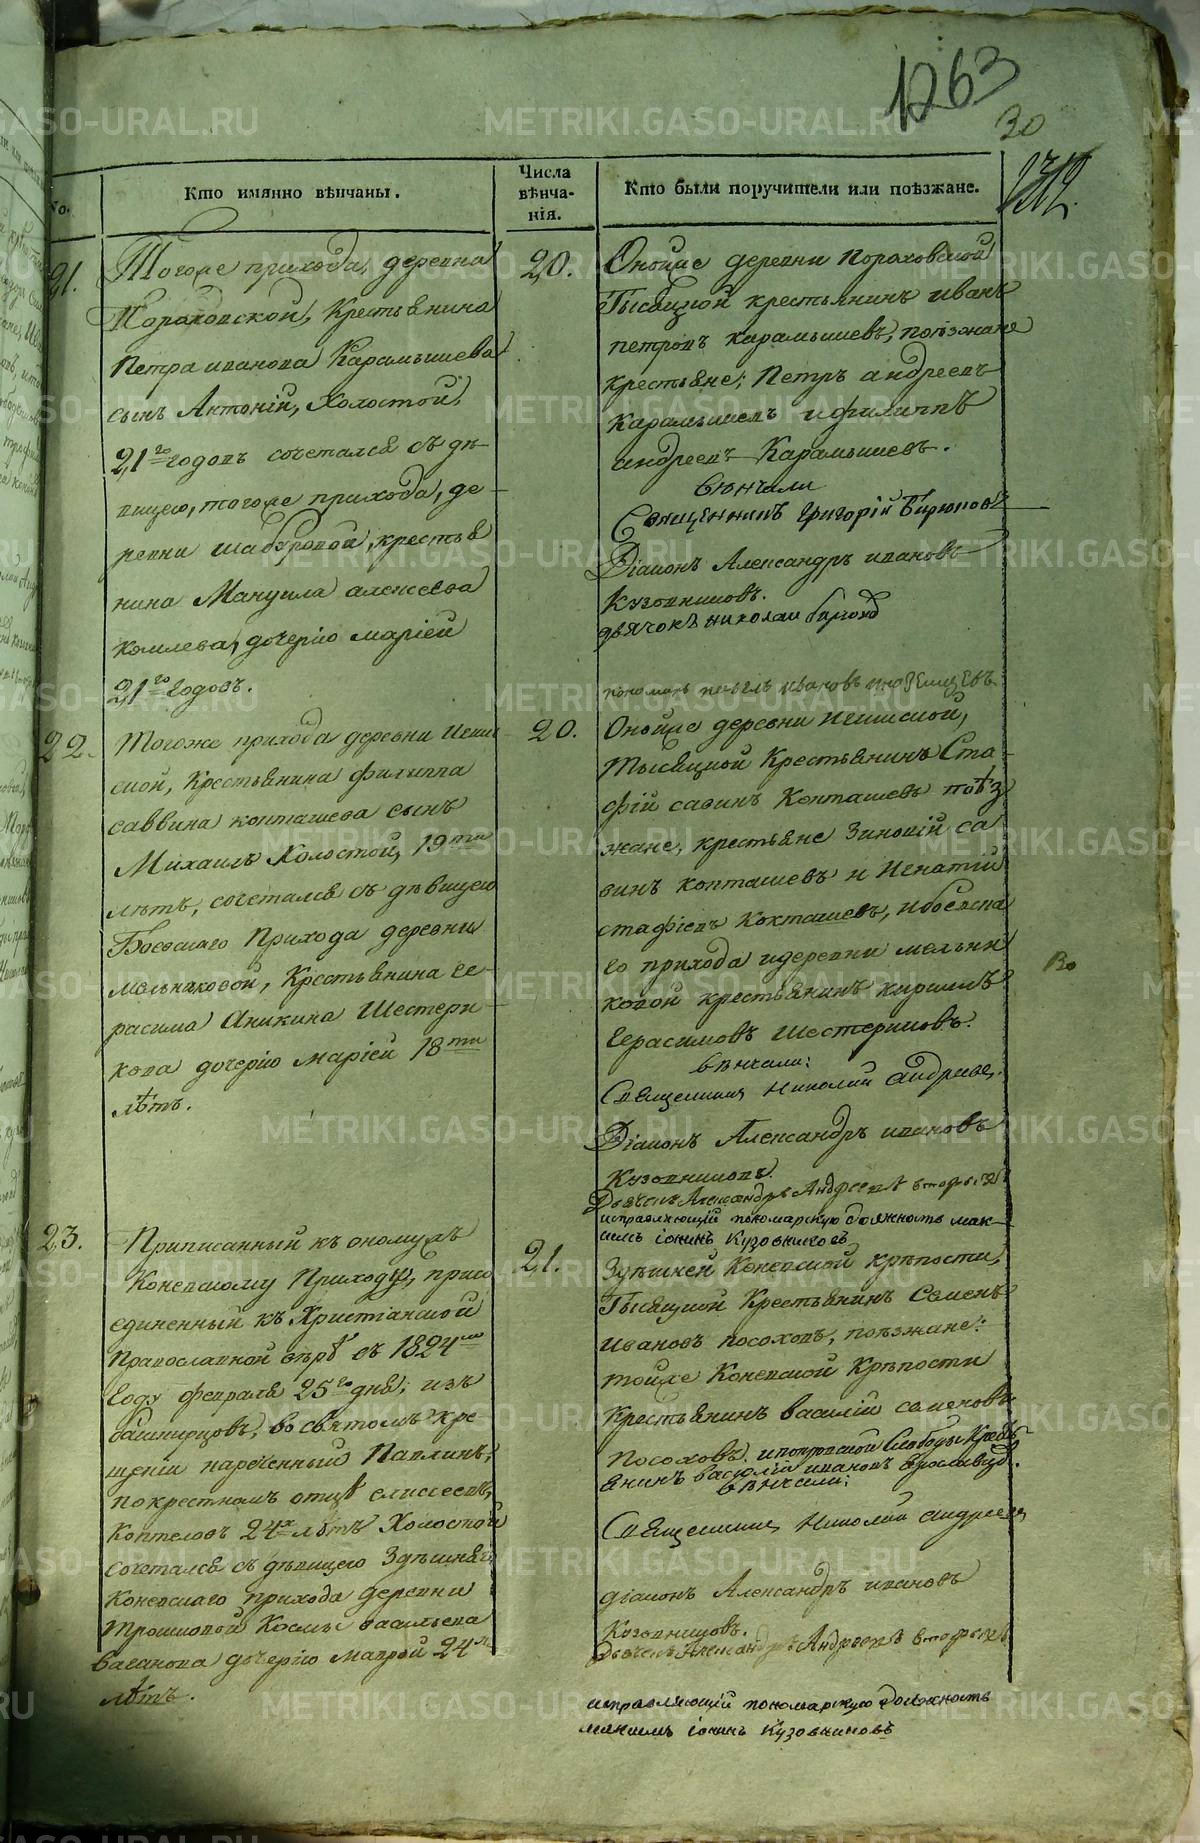 1263
30
No.
Кто имянно вѣнчаны.
Числа
вѣнча-
нія.
Кто были поручители или поѣзжане.
21.
Тогоже прихода, деревни
Пораховской, Крестьянина
Петра иванова Карамышева
сынъ Антоній, Холостой,
21го годовъ сочетался съ дѣ-
вицею, тогоже прихода, де-
ревни шабуровой, крестья
нина Мануила алексеева
комлева, дочерію маріей
21го годовъ.
20.
Онойже деревни Пораховской
Тысяцкой крестьянинъ иванъ
петровъ карамышевъ, поѣзжане
крестьяне; Петръ андреевъ
Карамышевъ ифилиппъ
андреевъ Карамышевъ.
вѣнчали
Священникъ Григорій Бирюковъ
Діаконъ Александръ ивановъ
Кузовниковъ.
дьячокъ николай
пономарь павелъ ивановъ
22.
Тогоже прихода деревни
ской, Крестьянина филиппа
саввина кокташева сынъ
Михаилъ Холостой, 19ти
лѣтъ, сочетался съ дѣвицею
Боевскаго Прихода деревни
мельниковой, Крестьянина ге-
расима Аникина Шестери-
кова дочерію маріей 18ти
лѣтъ.
20.
Онойже деревни
Тысяцкой Крестьянинъ Ста-
фій савинъ Кокташевъ поѣз
жане, крестьяне Зиновій са
винъ кокташевъ и Игнатій
стафіевъ Кокташевъ, ибоевска
го прихода идеревни мельни
ковой крестьянинъ кирилъ
Герасимовъ шестериковъ.
вѣнчали:
Священникъ Николай андреевъ
Діаконъ Александръ ивановъ
Кузовниковъ.
Дьячекъ Александръ Андреевъ вторый
исправляющій пономарскую должность мак-
симъ іонинъ Кузовниковъ
23.
Приписанный къ оному жъ
Коневскому Приходу, присо
единенный къ Христіанской
Православной вѣрѣ съ 1824го
Году февраля 25го дня; изъ
башкирцовъ, во святомъ кре-
щеніи нареченный Павлинъ,
покрестномъ отцѣ елисеевъ,
Коптеловъ 24х лѣтъ Холостой
сочетался съ дѣвицею Здѣшняго
Коневскаго прихода деревни
трошковой Космы васильева
ваганова дочерію маврой 24
лѣтъ.
21.
Здѣшней Коневской крѣпости,
Тысяцкой Крестьянинъ Семенъ
Ивановъ посоховъ, поѣзжане:
тойже Коневской Крѣпости
Крестьянинъ василій семеновъ
Посоховъ, Слободы Кресть
янинъ василій ивановъ
вѣнчали:
Священникъ Николай андреевъ
діаконъ Александръ ивановъ
Кузовниковъ.
Дьячекъ Александръ Андреевъ вторый
исправляющій пономарскую должность
максимъ іонинъ Кузовниковъ
METRIKI.GASO-URAL.RU